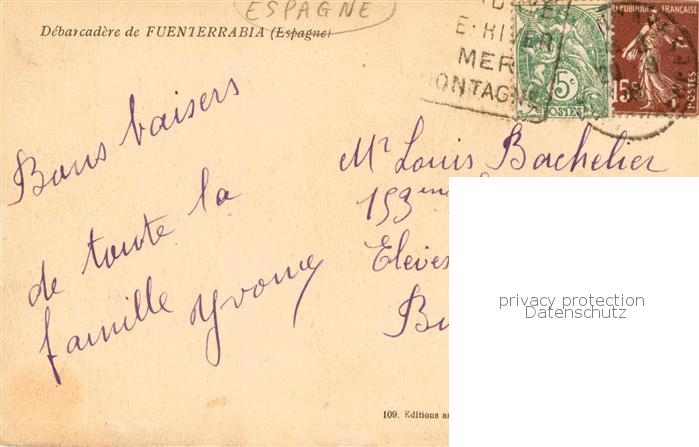 ESPAGNE
Débarcadère de FUENTERRABIA (Espagne)
E·HI
MER
MONTAGNE
5c
POSTES
REPUBLIQUE FRANÇAISE
15c
POSTES
Bons baisers
de toute la
famille Yvonne
Mr Louis Bachelier
153
Elèves
privacy protection
Datenschutz
109. Editions